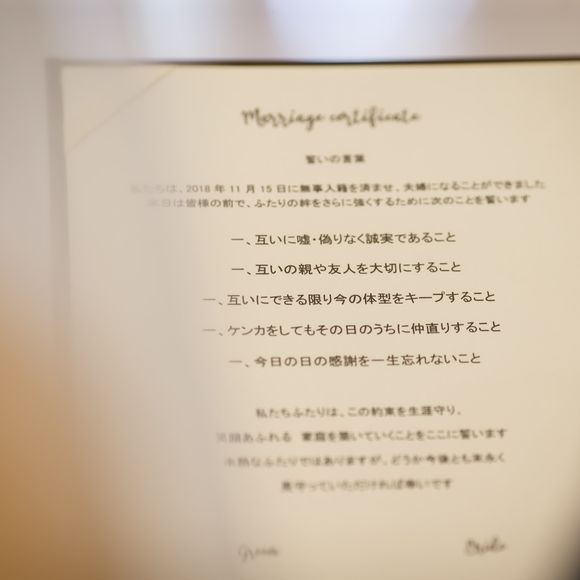 Marriage certificate
誓いの言葉
私たちは、2018 年 11 月 15 日に無事入籍を済ませ、夫婦になることができました
本日は皆様の前で、ふたりの絆をさらに強くするために次のことを誓います
一、互いに嘘・偽りなく誠実であること
一、互いの親や友人を大切にすること
一、互いにできる限り今の体型をキープすること
一、ケンカをしてもその日のうちに仲直りすること
一、今日の日の感謝を一生忘れないこと
私たちふたりは、この約束を生涯守り、
笑顔あふれる 家庭を築いていくことをここに誓います
未熟なふたりではありますが、どうか今後とも末永く
見守っていただければ幸いです
Groom
Bride